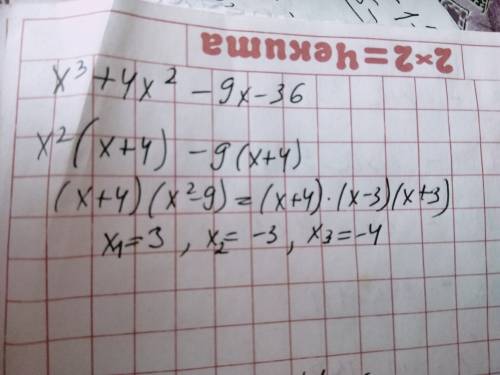 2×2=Чекита
x³+4x²-9x-36
x²(x+4)-9(x+4)
(x+4)(x²-9)=(x+4)·(x-3)(x+3)
x₁=3, x₂=-3, x₃=-4